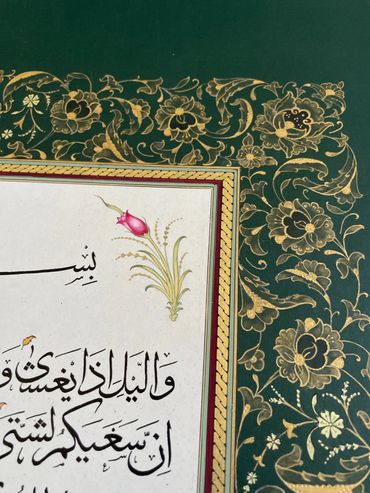 بســـ
وَالَّيلِ اِذَا يَغشىٰ وَ
اِنَّ سَعيَكُم لَشَتّىٰ